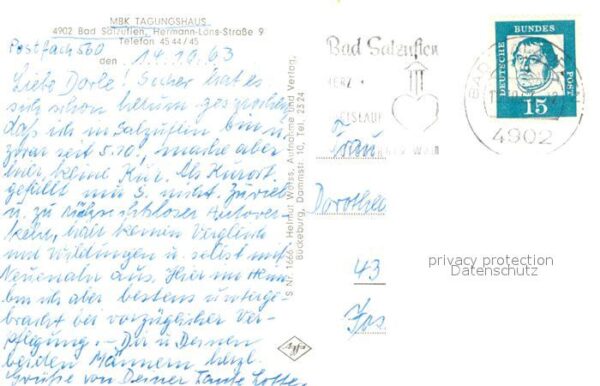 MBK TAGUNGSHAUS
4902 Bad Salzuflen, Hermann-Löns-Straße 9
Telefon 45 44/45
Postfach 560
den 14.10.63
Liebe Dorle! Sicher hat es
sich schon herum gesprochen
daß ich in Salzuflen bin u.
zwar seit 5.10., mache aber
hier keine Kur. Als Kurort
gefällt mir S. nicht. Zuviel
u. zu rücksichtsloser Autover-
kehr, hält keinen Vergleich
mit Wildungen u. selbst mit
Neuenahr aus. Hier im Heim
bin ich aber bestens unterge-
bracht bei vorzüglicher Ver-
pflegung. – Dir u. Deinen
beiden Männern herzl.
Grüße von Deiner Tante Lotte.
S Nr. 1666 Helmut Weiss, Aufnahme und Verlag,
Bückeburg, Dammstr. 10, Tel. 2324
Agfa
Bad Salzuflen
HERZ
KREISLAUF
BAD
4902
DEUTSCHE BUNDES POST
15
Frau
Dorothee
43
privacy protection
Datenschutz